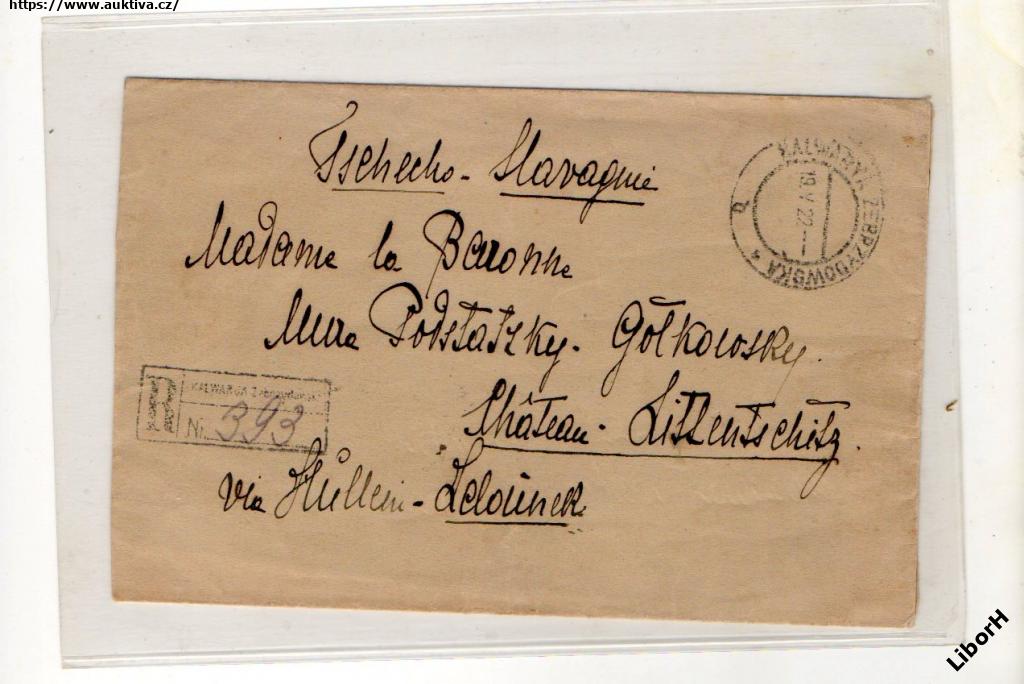 https://www.auktiva.cz/
Tschecho-Slavaquie
KALWARYA ZEBRZYDOWSKA *
19.V 22
Madame la Baronne
Mme Podstatzky-Gołkowsky.
Château-Littentschitz.
R
KALWARYA Zebrzydowska
Nr. 393
via Hullein-Zdounek
LiborH